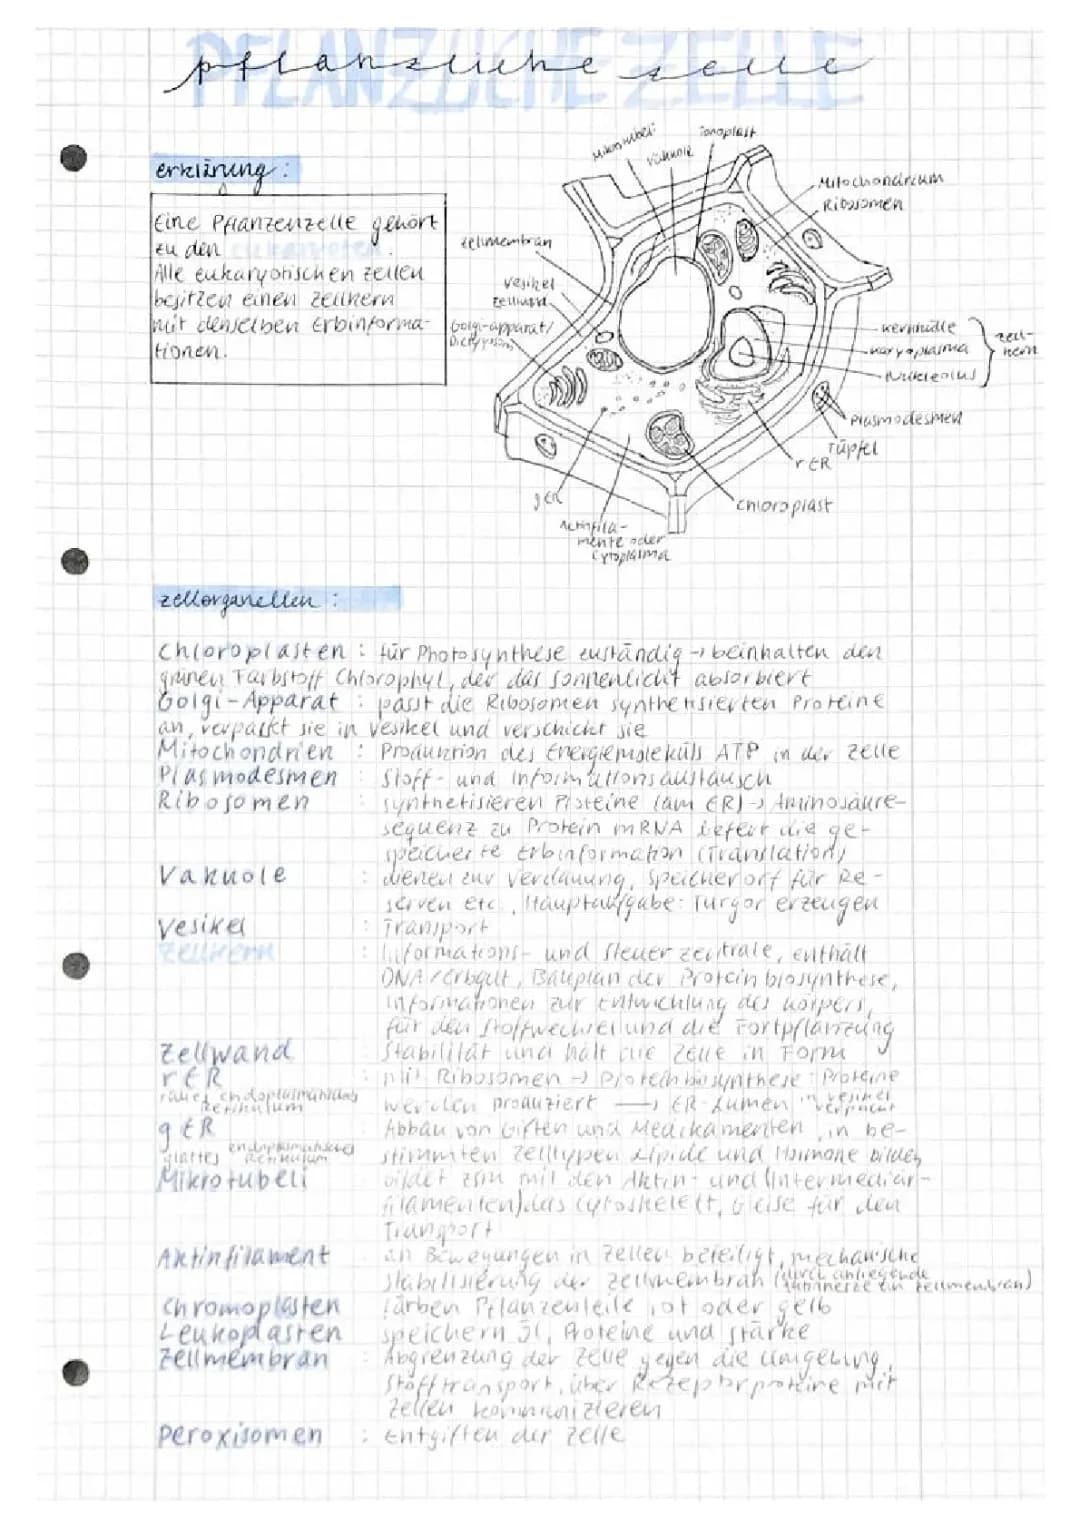 PFLANZLICHE ZELLE
pflanzliche zelle
erklärung :
Eine Pflanzenzelle gehört
zu den Eukaryoten.
Alle eukaryotischen Zellen
besitzen einen Zellkern
mit denselben Erbinforma-
tionen.
Mikrotubeli
Vakuole
Tonoplast
Mitochondrium
Ribosomen
Zellmembran
Vesikel
Zellwand
Golgi-Apparat/
Dictyosom
Kernhülle
Karyoplasma
Nukleolus
Zell-
kern
Plasmodesmen
Tüpfel
rER
Chloroplast
gER
Actinfila-
mente oder
Cytoplasma
zellorganellen :
Chloroplasten : für Photosynthese zuständig → beinhalten den
grünen Farbstoff Chlorophyl, der das Sonnenlicht absorbiert
Golgi-Apparat : passt die Ribosomen synthetisierten Proteine
an, verpackt sie in Vesikel und verschickt sie
Mitochondrien : Produktion des Energiemoleküls ATP in der Zelle
Plasmodesmen : Stoff- und Informationsaustausch
Ribosomen : synthetisieren Proteine (am ER) → Aminosäure-
sequenz zu Protein mRNA liefert die ge-
speicherte Erbinformation (Translation)
Vakuole : dienen zur Verdauung, Speicherort für Re-
serven etc., Hauptaufgabe: Turgor erzeugen
Vesikel : Transport
Zellkern : Informations- und Steuerzentrale, enthält
DNA/Erbgut, Bauplan der Proteinbiosynthese,
Informationen zur Entwicklung des Körpers,
für den Stoffwechsel und die Fortpflanzung
Zellwand : Stabilität und hält die Zelle in Form
rER : mit Ribosomen → Proteinbiosynthese : Proteine
raues endoplasmatisches Retikulum werden produziert → ER-Lumen in Vesikel verpackt
gER : Abbau von Giften und Medikamenten, in be-
glattes endoplasmatisches Retikulum stimmten Zelltypen Lipide und Hormone bilden
Mikrotubeli : bildet zsm mit den Aktin- und (Intermediär-
filamenten) das Cytoskelett, Gleise für den
Transport
Aktinfilament : an Bewegungen in Zellen beteiligt, mechanische
Stabilisierung der Zellmembran (durch anliegende zur Zellmembran)
Chromoplasten : färben Pflanzenteile rot oder gelb
Leukoplasten : speichern Öl, Proteine und Stärke
Zellmembran : Abgrenzung der Zelle gegen die Umgebung,
Stofftransport, über Rezeptorproteine mit
Zellen kommunizieren
Peroxisomen : Entgiften der Zelle